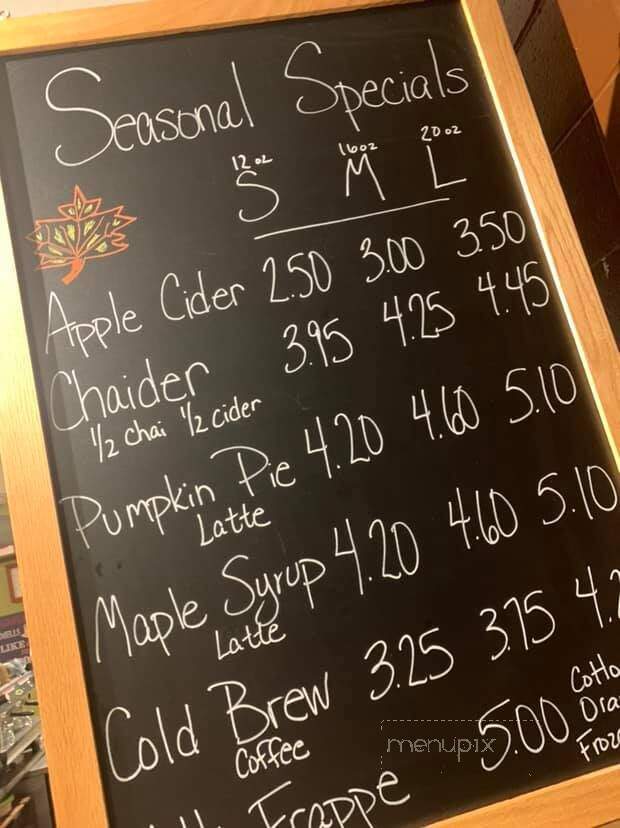 Seasonal Specials
12 oz 16oz 20 oz
S M L
Apple Cider 2.50 3.00 3.50
Chaider 3.95 4.25 4.45
1/2 chai 1/2 cider
Pumpkin Pie 4.20 4.60 5.10
Latte
Maple Syrup 4.20 4.60 5.10
Latte
Cold Brew 3.25 3.75 4.2
Coffee
Frappe 5.00
menupix
LIKE